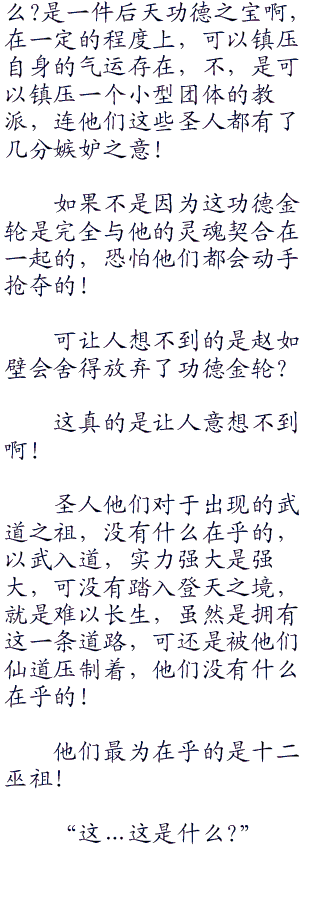 么?是一件后天功德之宝啊,
在一定的程度上，可以镇压
自身的气运存在，不，是可
以镇压一个小型团体的教
派，连他们这些圣人都有了
几分嫉妒之意!
如果不是因为这功德金
轮是完全与他的灵魂契合在
一起的，恐怕他们都会动手
抢夺的!
可让人想不到的是赵如
壁会舍得放弃了功德金轮?
这真的是让人意想不到
啊!
圣人他们对于出现的武
道之祖，没有什么在乎的，
以武入道，实力强大是强
大，可没有踏入登天之境，
就是难以长生，虽然是拥有
这一条道路，可还是被他们
仙道压制着，他们没有什么
在乎的!
他们最为在乎的是十二
巫祖!
“这…这是什么?”